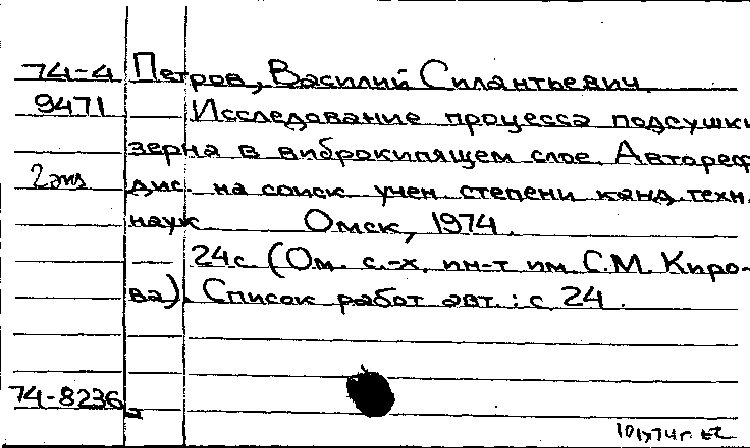 74-4 Петров, Василий Силантьевич.
9471 Исследование процесса подсушки
зерна в виброкипящем слое. Автореф.
2 экз. дис. на соиск. учен. степени канд. техн.
наук. Омск, 1974.
24с. (Ом. с.-х. ин-т им. С.М. Киро-
ва). Список работ авт.: с. 24.
74-8236